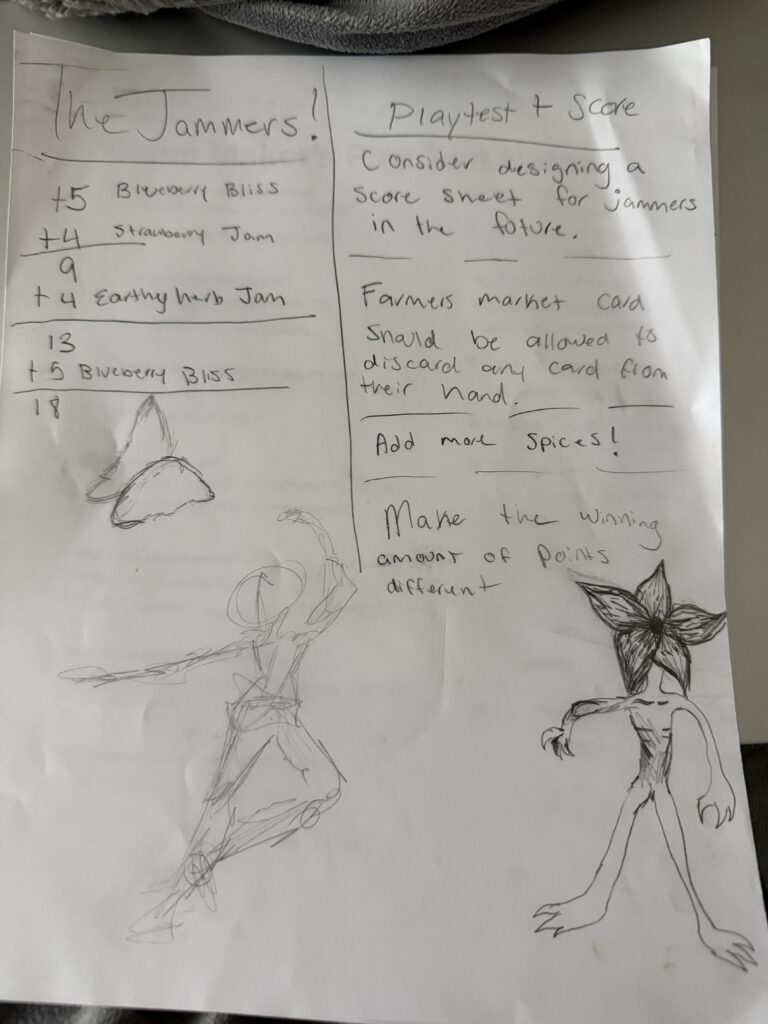 The Jammers!
+5 Blueberry Bliss
+4 Strawberry Jam
9
+4 Earthy herb Jam
13
+5 Blueberry Bliss
18
Playtest + Score
Consider designing a
score sheet for jammers
in the future.
Farmers market card
should be allowed to
discard any card from
their hand.
Add more spices!
Make the winning
amount of points
different